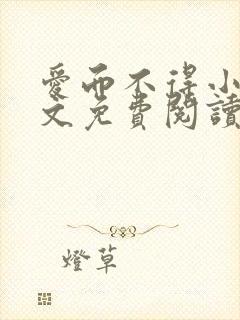 愛而不得小
文免費閱讀
燈草